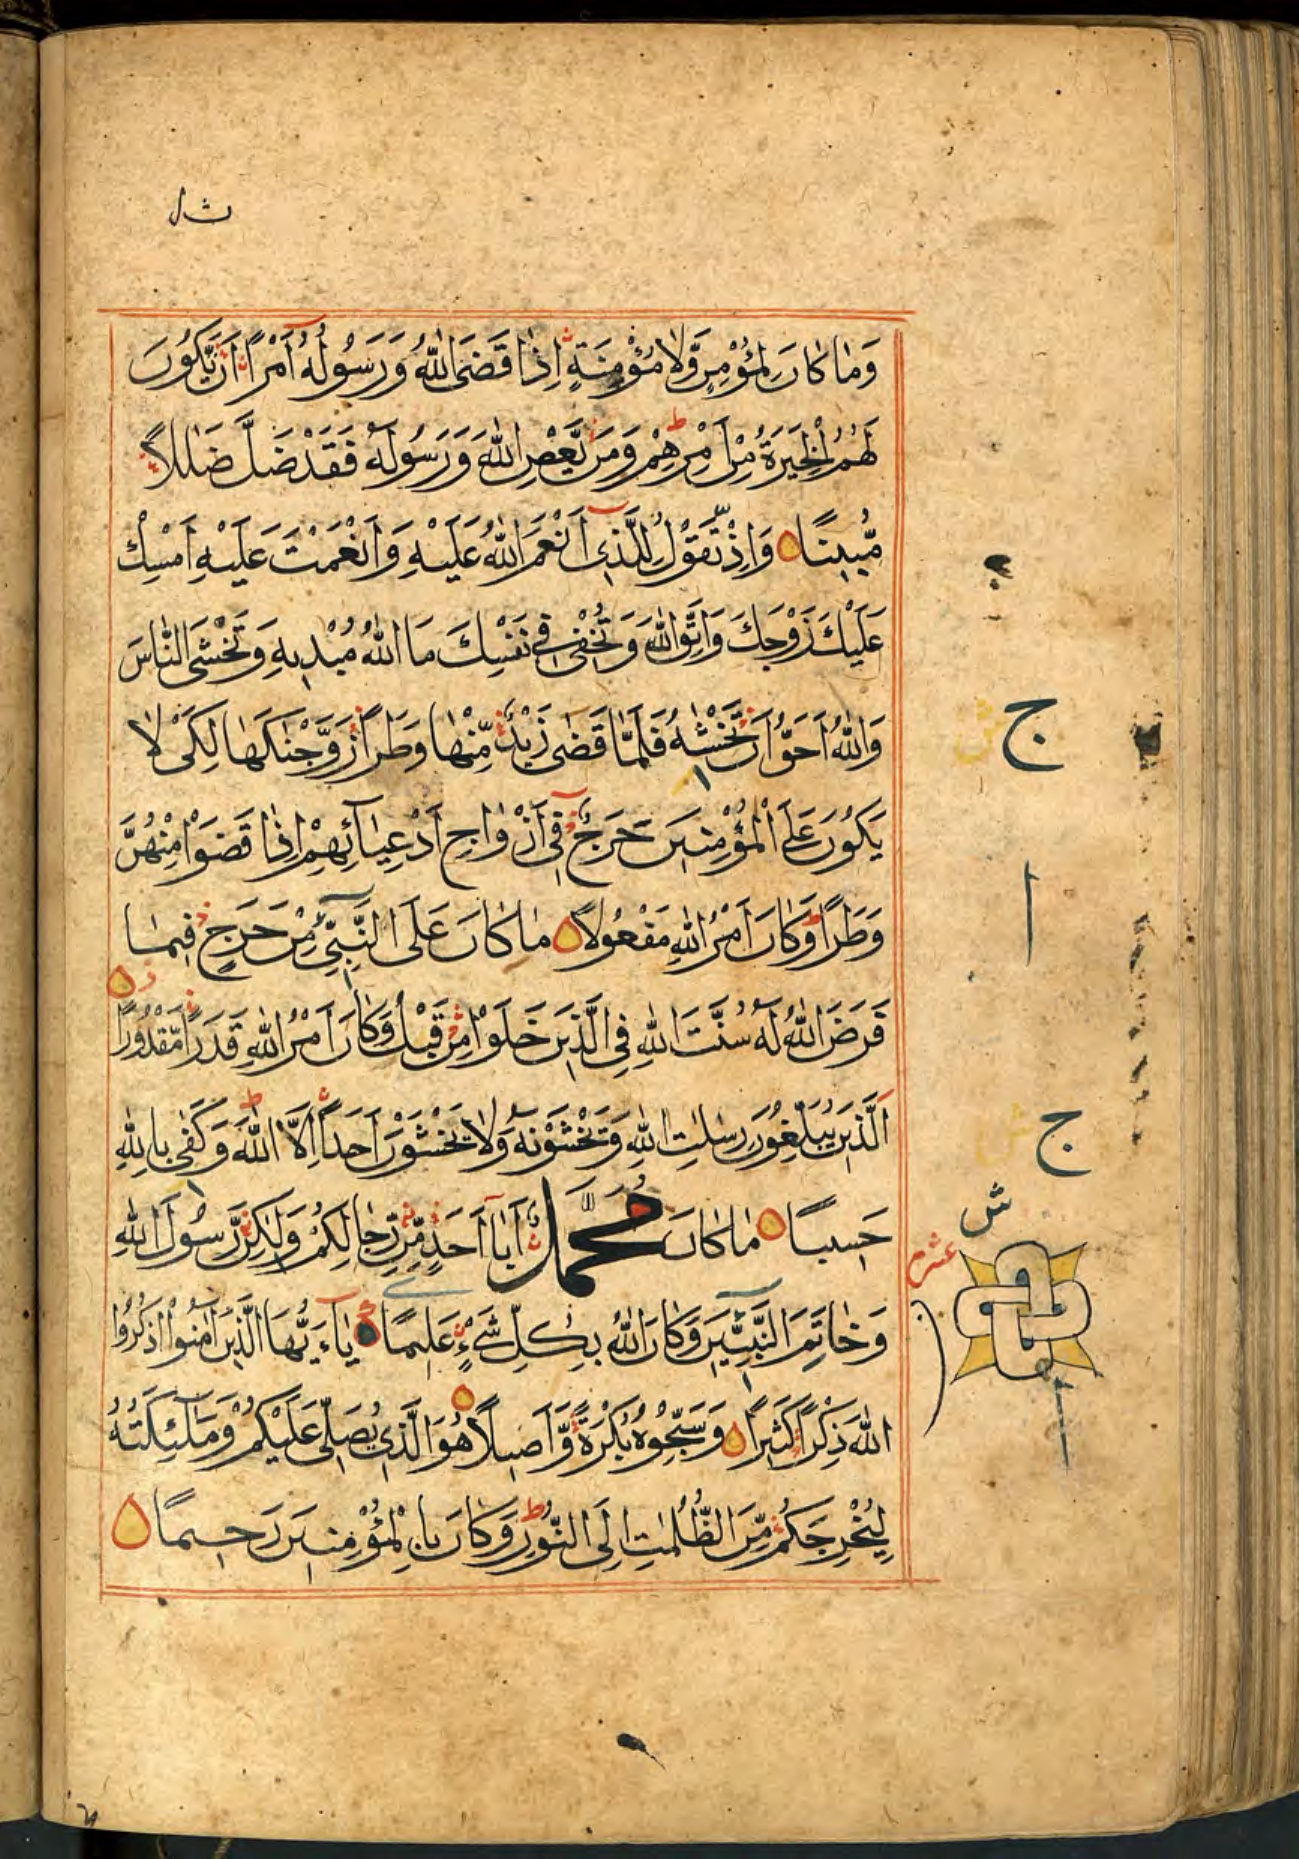 وَمَا كَانَ لِمُؤْمِنٍ وَّلَا مُؤْمِنَةٍ اِذَا قَضَى اللّٰهُ وَرَسُولُهٗ اَمْرًا اَنْ يَّكُونَ
لَهُمُ الْخِيَرَةُ مِنْ اَمْرِهِمْ وَمَنْ يَّعْصِ اللّٰهَ وَرَسُولَهٗ فَقَدْ ضَلَّ ضَلٰلًا
مُّبِينًا وَاِذْ تَقُوْلُ لِلَّذِي اَنْعَمَ اللّٰهُ عَلَيْهِ وَاَنْعَمْتَ عَلَيْهِ اَمْسِكْ
عَلَيْكَ زَوْجَكَ وَاتَّقِ اللّٰهَ وَتُخْفِي فِي نَفْسِكَ مَا اللّٰهُ مُبْدِيهِ وَتَخْشَى النَّاسَ
وَاللّٰهُ اَحَقُّ اَنْ تَخْشٰهُ فَلَمَّا قَضٰى زَيْدٌ مِّنْهَا وَطَرًا زَوَّجْنٰكَهَا لِكَيْ لَا
يَكُونَ عَلَى الْمُؤْمِنِينَ حَرَجٌ فِي اَزْوَاجِ اَدْعِيَآئِهِمْ اِذَا قَضَوْا مِنْهُنَّ
وَطَرًا وَكَانَ اَمْرُ اللّٰهِ مَفْعُولًا مَا كَانَ عَلَى النَّبِيِّ مِنْ حَرَجٍ فِيمَا
فَرَضَ اللّٰهُ لَهٗ سُنَّتَ اللّٰهِ فِي الَّذِينَ خَلَوْا مِنْ قَبْلُ وَكَانَ اَمْرُ اللّٰهِ قَدَرًا مَّقْدُورًا
الَّذِينَ يُبَلِّغُونَ رِسٰلٰتِ اللّٰهِ وَيَخْشَوْنَهٗ وَلَا يَخْشَوْنَ اَحَدًا اِلَّا اللّٰهَ وَكَفٰى بِاللّٰهِ
حَسِيبًا مَا كَانَ مُحَمَّدٌ اَبَآ اَحَدٍ مِّنْ رِّجَالِكُمْ وَلٰكِنْ رَّسُولَ اللّٰهِ
وَخَاتِمَ النَّبِيِّينَ وَكَانَ اللّٰهُ بِكُلِّ شَيْءٍ عَلِيمًا يَآءَيُّهَا الَّذِينَ اٰمَنُوا اذْكُرُوا
اللّٰهَ ذِكْرًا كَثِيرًا وَسَبِّحُوهُ بُكْرَةً وَّاَصِيلًا هُوَ الَّذِي يُصَلِّي عَلَيْكُمْ وَمَلٰٓئِكَتُهٗ
لِيُخْرِجَكُمْ مِّنَ الظُّلُمٰتِ اِلَى النُّورِ وَكَانَ بِالْمُؤْمِنِينَ رَحِيمًا
ج
ش
ا
ج
ش
ش
عشر